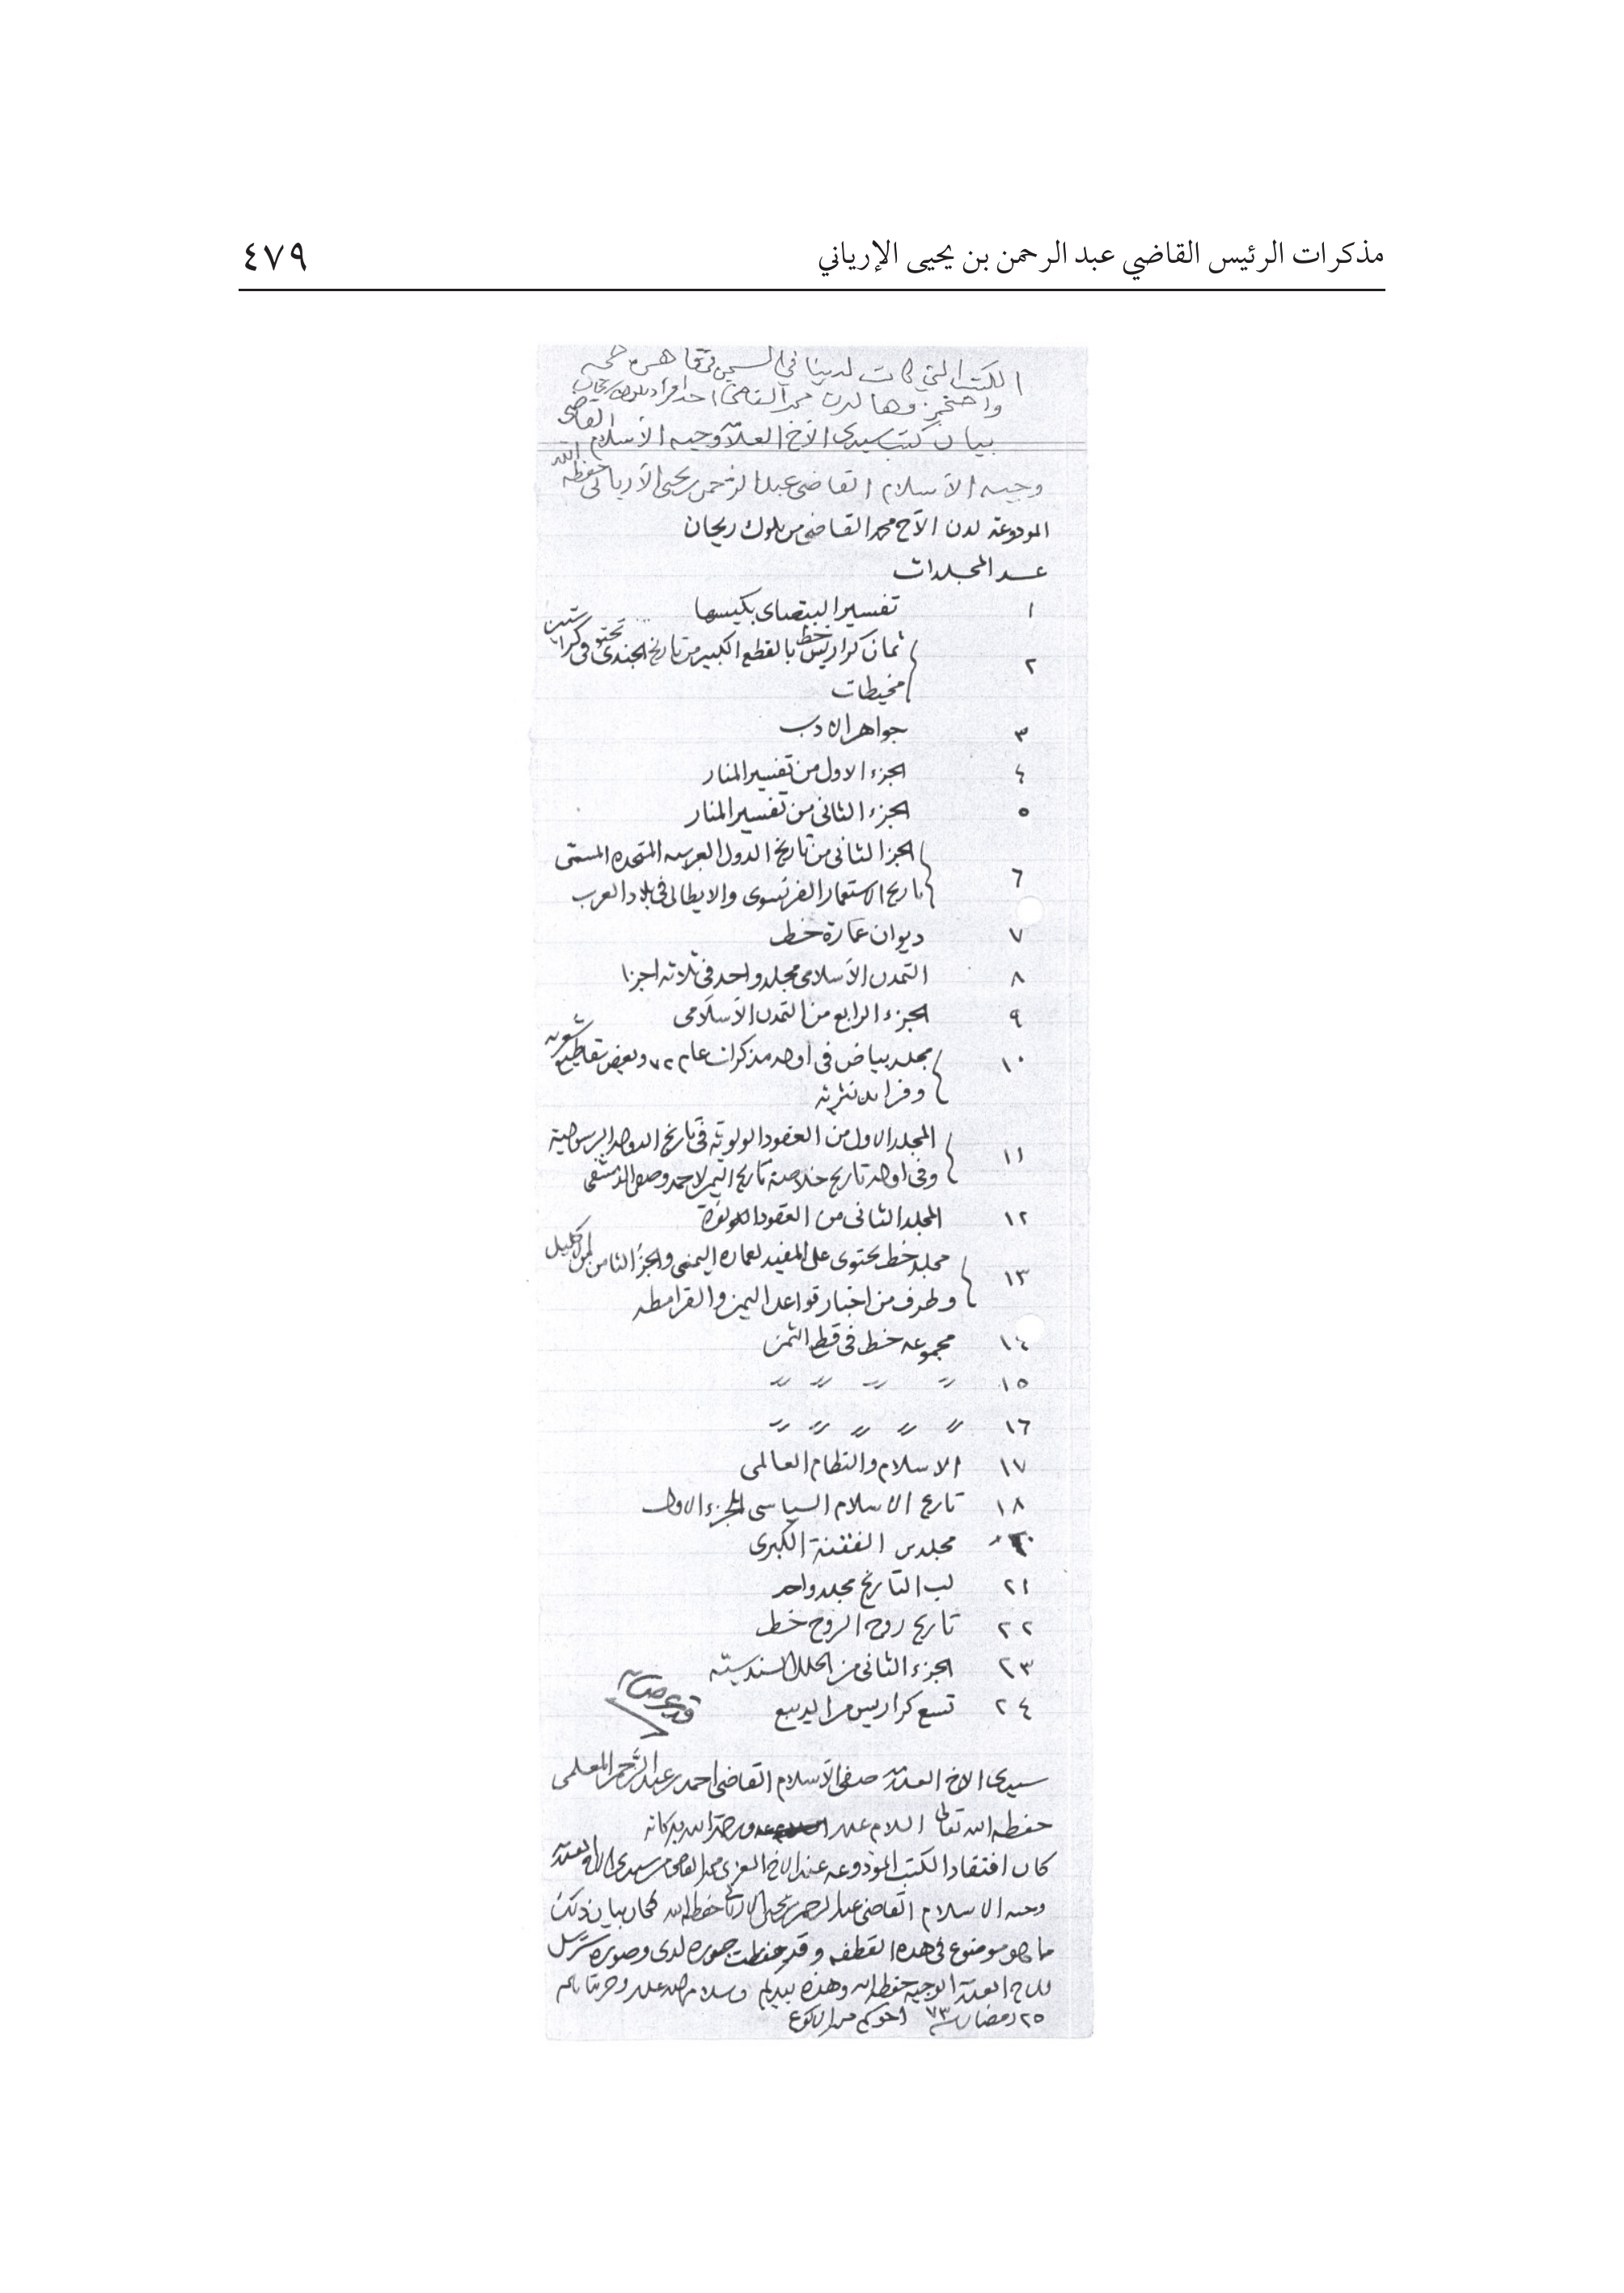 مذكرات الرئيس القاضي عبد الرحمن بن يحيى الإرياني ٤٧٩
الكتب التي كانت لدينا في السجن في قاهرة حجه
بيان كتب سيدي الأخ العلامة وجيه الأسلام القاضي
وجيه الأسلام القاضي عبد الرحمن بن يحيى الأرياني حفظه الله
المودوعة لدن الأخ محمد القاضي من بلوك ريحان
عدد المجلدات
١ تفسير البيضاوي بكيسها
٢ ثمان كراريس خط بالقطع الكبير من تاريخ الجندي
مخيطات
٣ جواهر الادب
٤ الجزء الاول من تفسير المنار
٥ الجزء الثاني من تفسير المنار
٦ الجزء الثاني من تاريخ الدول العربيه المتحده المسمى
تاريخ الاستعمار الفرنسوي والايطالي في بلاد العرب
٧ ديوان عمارة خط
٨ التمدن الأسلامي مجلد واحد في ثلاثه اجزا
٩ الجزء الرابع من التمدن الأسلامي
١٠ مجلد بياض في اوله مذكرات عام ٧٢ وبعض مقاطيع شعريه
وفرائد نثريه
١١ المجلد الاول من العقود اللولويه في تاريخ الدوله الرسوليه
وفي اوله تاريخ خلاصة تاريخ اليمن لاحمد وصفي الدمشقي
١٢ المجلد الثاني من العقود اللولوية
١٣ مجلد خط يحتوي على المفيد لعماره اليمني والجزء الثامن من الاكليل
وطرف من اخبار قواعد اليمن والقرامطه
١٤ مجموعه خط في قطع الثمن
١٥ 〃 〃 〃 〃
١٦ 〃 〃 〃 〃 〃
١٧ الاسلام والنظام العالمي
١٨ تاريخ الاسلام السياسي الجزء الاول
٢٠ مجلدين الفتنة الكبرى
٢١ لب التاريخ مجلد واحد
٢٢ تاريخ روح الروح خط
٢٣ الجزء الثاني من الحلل السندسيه
٢٤ تسع كراريس من الديبع
سيدي الاخ العلامة صفي الأسلام القاضي احمد بن عبد الرحمن المعلمي
حفظه الله تعالى السلام عليكم ورحمة الله وبركاته
كان افتقاد الكتب المودوعه عند الاخ العزي محمد القاضي من سيدي الاخ العلامة
وجيه الاسلام القاضي عبد الرحمن بن يحيى الارياني حفظه الله فكان بيان ذلك
ما هو موضوع في هذه القطفه وقد حفظت صوره لدي وصوره سترسل
للاخ العلامة الوجيه حفظه الله وهذه بيديكم
٢٥ رمضان سنة ٧٣ اخوكم